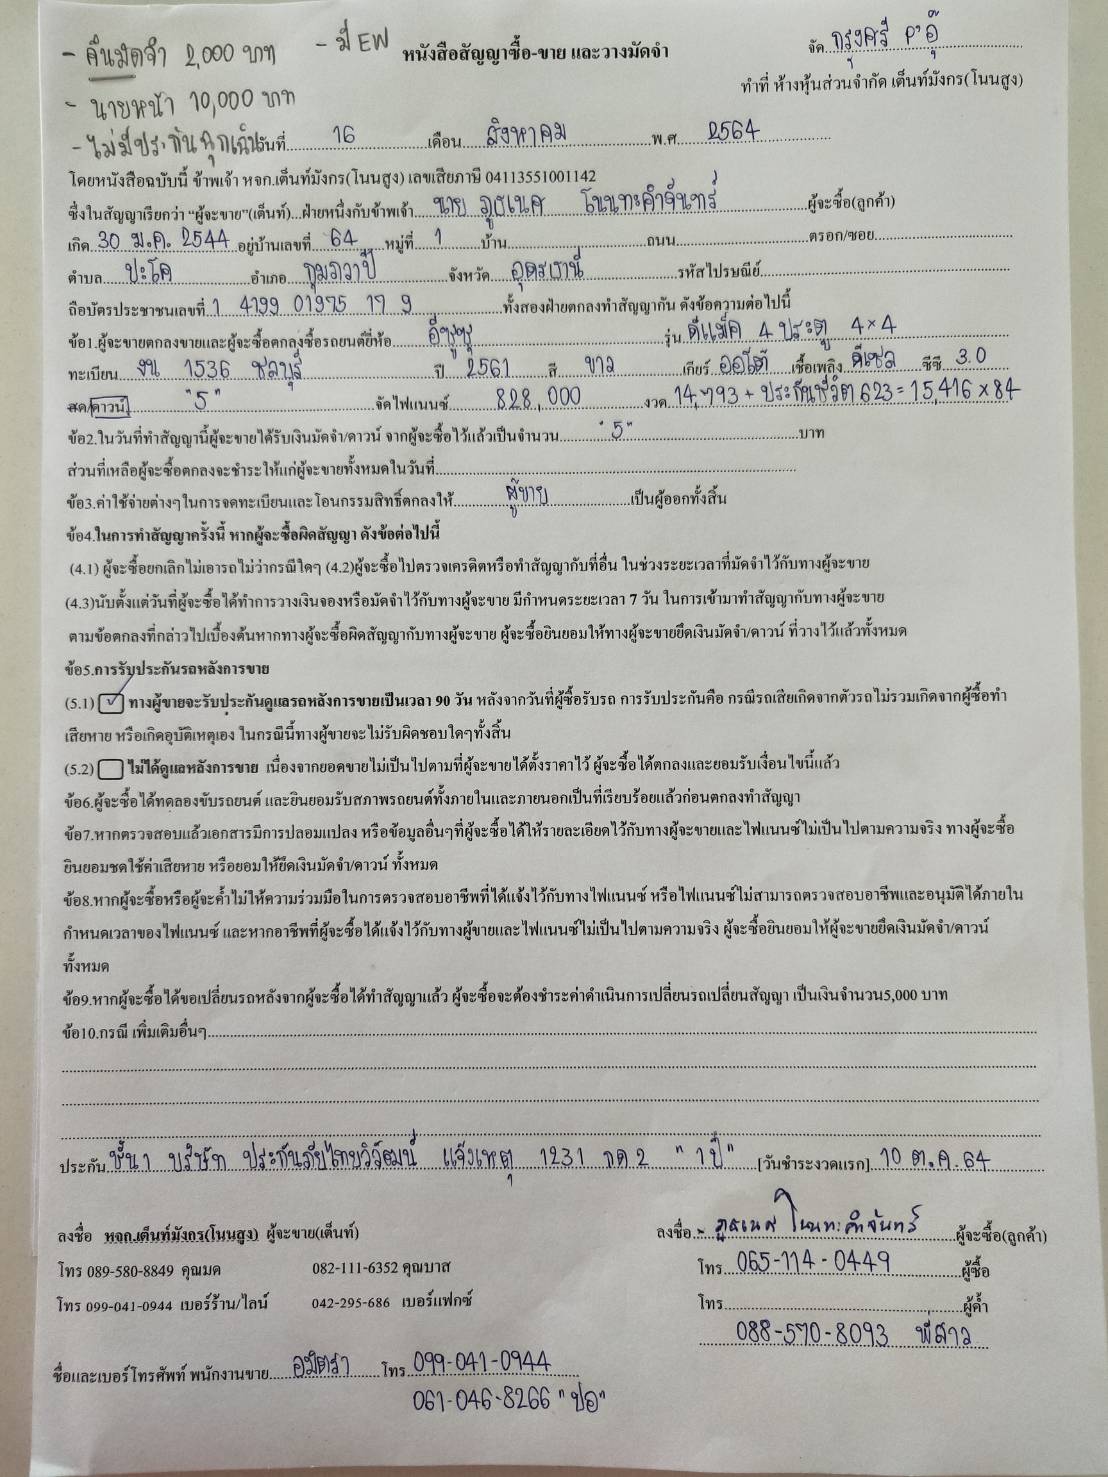 - คืนมัดจำ 2,000 บาท - มี EW
หนังสือสัญญาซื้อ-ขาย และวางมัดจำ
จัด กรุงศรี P'อุ๊
ทำที่ ห้างหุ้นส่วนจำกัด เต็นท์มังกร(โนนสูง)
- นายหน้า 10,000 บาท
- ไม่มีประกันฉุกเฉิน
วันที่ 16 เดือน สิงหาคม พ.ศ. 2564
โดยหนังสือฉบับนี้ ข้าพเจ้า หจก.เต็นท์มังกร(โนนสูง) เลขเสียภาษี 04113551001142
ซึ่งในสัญญาเรียกว่า "ผู้จะขาย"(เต็นท์)...ฝ่ายหนึ่งกับข้าพเจ้า นาย ภูธเนศ โนนทะคำจันทร์ ผู้จะซื้อ(ลูกค้า)
เกิด 30 ม.ค. 2544 อยู่บ้านเลขที่ 64 หมู่ที่ 1 บ้าน ถนน ตรอก/ซอย
ตำบล ปะโค อำเภอ กุมภวาปี จังหวัด อุดรธานี รหัสไปรษณีย์
ถือบัตรประชาชนเลขที่ 1 4199 01975 17 9 ทั้งสองฝ่ายตกลงทำสัญญากัน ดังข้อความต่อไปนี้
ข้อ1.ผู้จะขายตกลงขายและผู้จะซื้อตกลงซื้อรถยนต์ยี่ห้อ อีซูซุ รุ่น ดีแม็ค 4 ประตู 4×4
ทะเบียน งน 1536 ชลบุรี ปี 2561 สี ขาว เกียร์ ออโต้ เชื้อเพลิง ดีเซล ซีซี 3.0
สด/ดาวน์ "5" จัดไฟแนนซ์ 828,000 งวด 14,793 + ประกันชีวิต 623 = 15,416 × 84
ข้อ2.ในวันที่ทำสัญญานี้ผู้จะขายได้รับเงินมัดจำ/ดาวน์ จากผู้จะซื้อไว้แล้วเป็นจำนวน "5" บาท
ส่วนที่เหลือผู้จะซื้อตกลงจะชำระให้แก่ผู้จะขายทั้งหมดในวันที่
ข้อ3.ค่าใช้จ่ายต่างๆในการจดทะเบียนและโอนกรรมสิทธิ์ตกลงให้ ผู้ขาย เป็นผู้ออกทั้งสิ้น
ข้อ4.ในการทำสัญญาครั้งนี้ หากผู้จะซื้อผิดสัญญา ดังข้อต่อไปนี้
(4.1) ผู้จะซื้อยกเลิกไม่เอารถไม่ว่ากรณีใดๆ (4.2)ผู้จะซื้อไปตรวจเครดิตหรือทำสัญญากับที่อื่น ในช่วงระยะเวลาที่มัดจำไว้กับทางผู้จะขาย
(4.3)นับตั้งแต่วันที่ผู้จะซื้อได้ทำการวางเงินจองหรือมัดจำไว้กับทางผู้จะขาย มีกำหนดระยะเวลา 7 วัน ในการเข้ามาทำสัญญากับทางผู้จะขาย
ตามข้อตกลงที่กล่าวไปเบื้องต้นหากทางผู้จะซื้อผิดสัญญากับทางผู้จะขาย ผู้จะซื้อยินยอมให้ทางผู้จะขายยึดเงินมัดจำ/ดาวน์ ที่วางไว้แล้วทั้งหมด
ข้อ5.การรับประกันรถหลังการขาย
(5.1) ✓ ทางผู้ขายจะรับประกันดูแลรถหลังการขายเป็นเวลา 90 วัน หลังจากวันที่ผู้ซื้อรับรถ การรับประกันคือ กรณีรถเสียเกิดจากตัวรถไม่รวมเกิดจากผู้ซื้อทำ
เสียหาย หรือเกิดอุบัติเหตุเอง ในกรณีนี้ทางผู้ขายจะไม่รับผิดชอบใดๆทั้งสิ้น
(5.2) ไม่ได้ดูแลหลังการขาย เนื่องจากยอดขายไม่เป็นไปตามที่ผู้จะขายได้ตั้งราคาไว้ ผู้จะซื้อได้ตกลงและยอมรับเงื่อนไขนี้แล้ว
ข้อ6.ผู้จะซื้อได้ทดลองขับรถยนต์ และยินยอมรับสภาพรถยนต์ทั้งภายในและภายนอกเป็นที่เรียบร้อยแล้วก่อนตกลงทำสัญญา
ข้อ7.หากตรวจสอบแล้วเอกสารมีการปลอมแปลง หรือข้อมูลอื่นๆที่ผู้จะซื้อได้ให้รายละเอียดไว้กับทางผู้จะขายและไฟแนนซ์ไม่เป็นไปตามความจริง ทางผู้จะซื้อ
ยินยอมชดใช้ค่าเสียหาย หรือยอมให้ยึดเงินมัดจำ/ดาวน์ ทั้งหมด
ข้อ8.หากผู้จะซื้อหรือผู้จะค้ำไม่ให้ความร่วมมือในการตรวจสอบอาชีพที่ได้แจ้งไว้กับทางไฟแนนซ์ หรือไฟแนนซ์ไม่สามารถตรวจสอบอาชีพและอนุมัติได้ภายใน
กำหนดเวลาของไฟแนนซ์ และหากอาชีพที่ผู้จะซื้อได้แจ้งไว้กับทางผู้ขายและไฟแนนซ์ไม่เป็นไปตามความจริง ผู้จะซื้อยินยอมให้ผู้จะขายยึดเงินมัดจำ/ดาวน์
ทั้งหมด
ข้อ9.หากผู้จะซื้อได้ขอเปลี่ยนรถหลังจากผู้จะซื้อได้ทำสัญญาแล้ว ผู้จะซื้อจะต้องชำระค่าดำเนินการเปลี่ยนรถเปลี่ยนสัญญา เป็นเงินจำนวน5,000 บาท
ข้อ10.กรณี เพิ่มเติมอื่นๆ
ประกัน ชั้น 1 บริษัท ประกันภัยไทยวิวัฒน์ แจ้งเหตุ 1231 กด 2 "1 ปี" [วันชำระงวดแรก] 10 ต.ค. 64
ลงชื่อ หจก.เต็นท์มังกร(โนนสูง) ผู้จะขาย(เต็นท์) ลงชื่อ ภูธเนศ โนนทะคำจันทร์ ผู้จะซื้อ(ลูกค้า)
โทร 089-580-8849 คุณมด 082-111-6352 คุณบาส โทร 065-114-0449 ผู้ซื้อ
โทร 099-041-0944 เบอร์ร้าน/ไลน์ 042-295-686 เบอร์แฟกซ์ โทร ผู้ค้ำ
088-570-8093 พี่สาว
ชื่อและเบอร์โทรศัพท์ พนักงานขาย อมิตรา โทร 099-041-0944
061-046-8266 "ปอ"